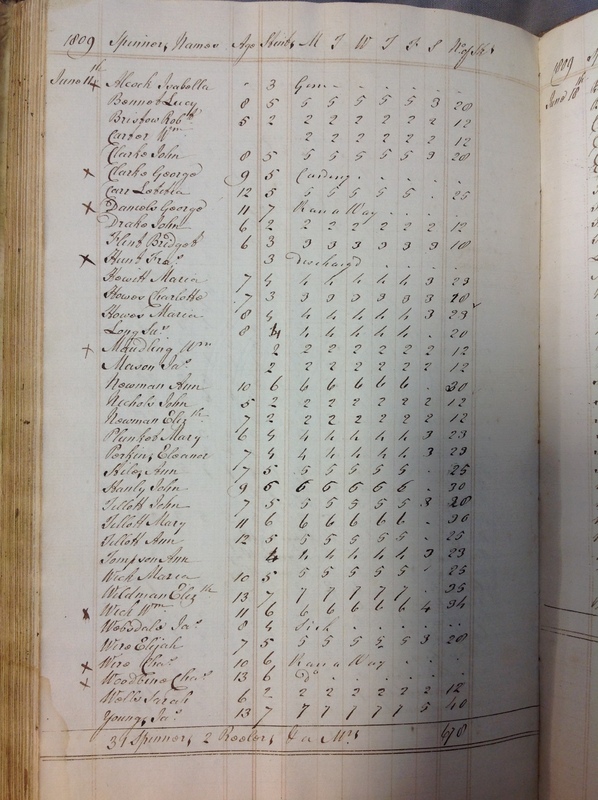 1809 Spinners Names Age Stents M T W T F S No of Sks
June 14th x Alcock Isabella - 3 Gone - - - - - -
Bennet Lucy 8 5 5 5 5 5 5 3 28
Bristow Robt 5 2 2 2 2 2 2 2 12
Carter Wm 2 2 2 2 2 2 12
Clarke John 8 5 5 5 5 5 5 3 28
x Clarke George 9 5 Carding - - - -
Carr Lætitia 12 5 5 5 5 5 5 - 25
x Daniels George 11 7 Ran a Way - - -
Drake John 6 2 2 2 2 2 2 2 12
Flint Bridget 6 3 3 3 3 3 3 3 18
x Hunt Fras 3 Discharged - - -
Howitt Maria 7 4 4 4 4 4 4 3 23
Howes Charlotte 7 3 3 3 3 3 3 3 18
Howes Maria 8 4 4 4 4 4 4 3 23
Long Jas 8 4 4 4 4 4 4 - 20
x Maudling Wm 2 2 2 2 2 2 2 12
Mason Jas 2 2 2 2 2 2 2 12
Newman Ann 10 6 6 6 6 6 6 - 30
Nichols John 5 2 2 2 2 2 2 2 12
Newman Elizth 7 2 2 2 2 2 2 2 12
Plunket Mary 6 4 4 4 4 4 4 3 23
Perkins Eleanor 7 4 4 4 4 4 4 3 23
Ann 7 5 5 5 5 5 5 - 25
Stanly John 9 6 6 6 6 6 6 - 30
Tillott John 7 5 5 5 5 5 5 3 28
Tillott Mary 11 6 6 6 6 6 6 - 30
Tillott Ann 12 5 5 5 5 5 5 - 25
Tompson Ann 4 4 4 4 4 4 3 23
Wick Maria 10 5 5 5 5 5 5 - 25
Wildman Elizth 13 7 7 7 7 7 7 - 35
x Wick Wm 11 6 6 6 6 6 6 4 34
Jas 8 4 Sick - - - -
Wire Elijah 7 5 5 5 5 5 5 3 28
x Wire Chas 10 6 Ran a Way - - -
x Woodbine Chas 13 6 Do - - - -
Wells Sarah 6 2 2 2 2 2 2 2 12
Youngs Jas 13 7 7 7 7 7 7 5 40
31 Spinners 2 Reelers & a Mrs 678
1809
June 18th